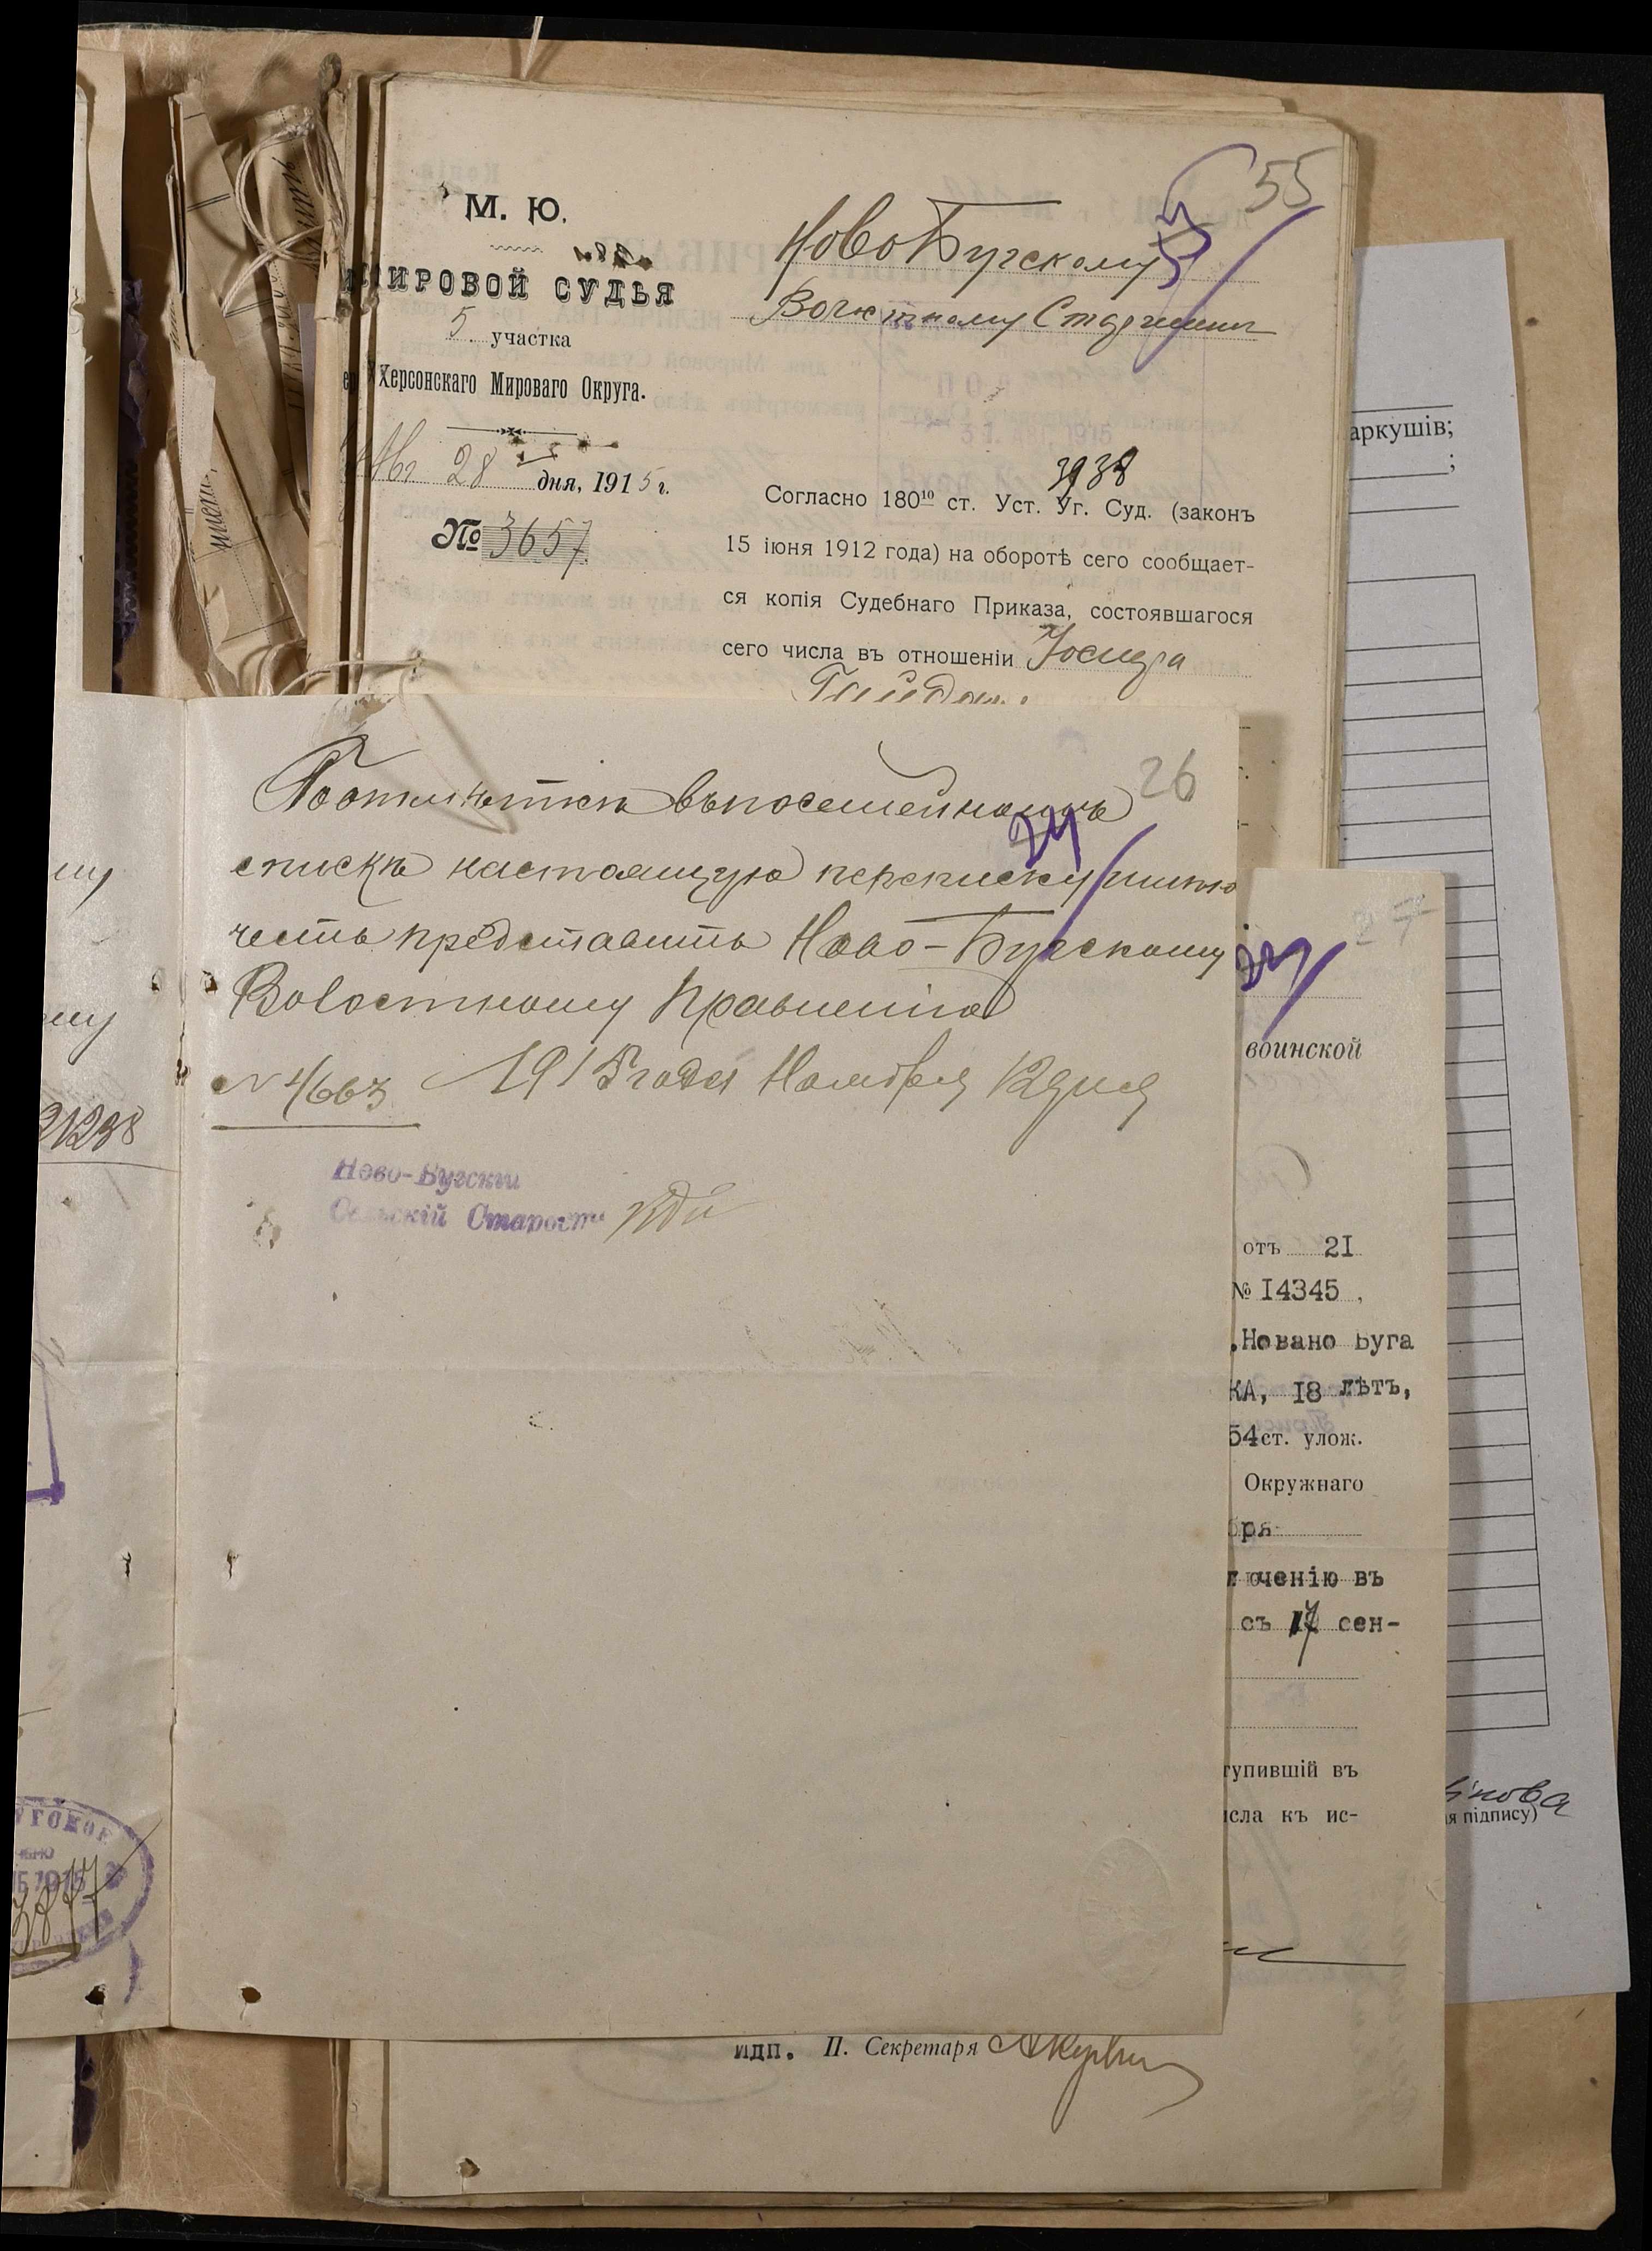 55
М. Ю.
МИРОВОЙ СУДЬЯ
5 участка
Херсонскаго Мироваго Округа.
Авг 28 дня, 1915 г.
№ 3657
НовоБугскому
Волостному Старшине
3938
Согласно 180¹⁰ ст. Уст. Уг. Суд. (законъ
15 іюня 1912 года) на оборотѣ сего сообщает-
ся копія Судебнаго Приказа, состоявшагося
сего числа въ отношеніи Іосифа
26
По отмѣткѣ въ посемейномъ
24
спискѣ настоящую переписку имѣю
честь представить Ново-Бугскому
Волостному Правленію
№ 4663 1915 года Ноября 12 дня
Ново-Бугскій
Сельскій Староста
21298
1915
3877
27
воинской
отъ 21
№ 14345 ,
.Новаго Буга
КА, 18 лѣтъ,
54 ст. улож.
Окружнаго
бря
юченію въ
съ 17 сен-
тупившій въ
исла къ ис-
идп. П. Секретаря
аркушів;
;
я підпису)